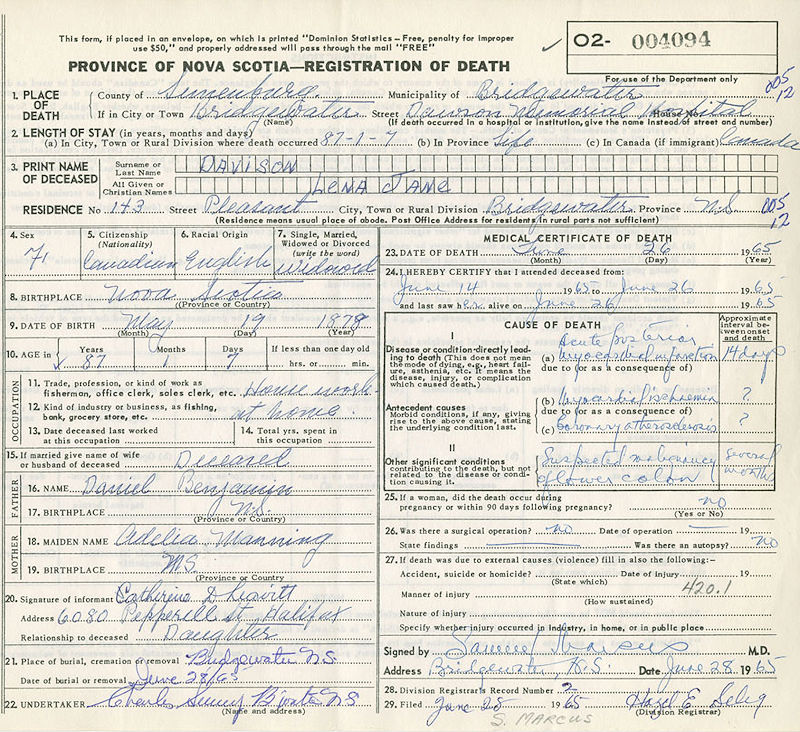 This form, if placed in an envelope, on which is printed "Dominion Statistics – Free, penalty for improper
use $50," and properly addressed will pass through the mail "FREE"
02- 004094
PROVINCE OF NOVA SCOTIA—REGISTRATION OF DEATH
For use of the Department only
005
12
1. PLACE OF DEATH County of Lunenburg Municipality of Bridgewater
If in City or Town Bridgewater Street Dawson Memorial Hospital House No.
(Name) (If death occurred in a hospital or institution, give the name instead of street and number)
2. LENGTH OF STAY (in years, months and days)
(a) In City, Town or Rural Division where death occurred 87-1-7 (b) In Province Life (c) In Canada (if immigrant) Canada
3. PRINT NAME OF DECEASED Surname or Last Name DAVISON
All Given or Christian Names LENA JANE
RESIDENCE No 143 Street Pleasant City, Town or Rural Division Bridgewater Province N.S. 005
12
(Residence means usual place of abode. Post Office Address for residents in rural parts not sufficient)
4. Sex 5. Citizenship (Nationality) 6. Racial Origin 7. Single, Married, Widowed or Divorced (write the word)
Canadian English Widowed
8. BIRTHPLACE Nova Scotia
(Province or Country)
9. DATE OF BIRTH May 19 1878
(Month) (Day) (Year)
10. AGE in Years Months Days If less than one day old
87 1 7 hrs. or min.
OCCUPATION
11. Trade, profession, or kind of work as fisherman, office clerk, sales clerk, etc. House work
12. Kind of industry or business, as fishing, bank, grocery store, etc. at home
13. Date deceased last worked at this occupation 14. Total yrs. spent in this occupation
15. If married give name of wife or husband of deceased
FATHER
16. NAME Daniel Benjamin
17. BIRTHPLACE N.S.
(Province or Country)
MOTHER
18. MAIDEN NAME Adelia Manning
19. BIRTHPLACE N.S.
(Province or Country)
20. Signature of informant Catherine D
Address 6080 Pepperell St Halifax
Relationship to deceased Daughter
21. Place of burial, cremation or removal Bridgewater N.S.
Date of burial or removal June 28/65
22. UNDERTAKER Charles B'water N.S.
(Name and address)
MEDICAL CERTIFICATE OF DEATH
23. DATE OF DEATH June 26 1965
(Month) (Day) (Year)
24. I HEREBY CERTIFY that I attended deceased from:
June 14 1965 to June 26 1965
and last saw her alive on June 26 1965
CAUSE OF DEATH
Approximate interval between onset and death
I
Disease or condition directly leading to death (This does not mean the mode of dying, e.g., heart failure, asthenia, etc. It means the disease, injury, or complication which caused death.)
(a) Acute posterior myocardial infarction 14 days
due to (or as a consequence of)
Antecedent causes
Morbid conditions, if any, giving rise to the above cause, stating the underlying condition last.
(b) Myocardial ischaemia ?
due to (or as a consequence of)
(c) Coronary atherosclerosis ?
II
Other significant conditions contributing to the death, but not related to the disease or condition causing it.
Suspected malignancy of lower colon Several months
25. If a woman, did the death occur during pregnancy or within 90 days following pregnancy? no
(Yes or No)
26. Was there a surgical operation? no Date of operation 19
State findings Was there an autopsy? no
27. If death was due to external causes (violence) fill in also the following:–
Accident, suicide or homicide? Date of injury 19
(State which)
Manner of injury 420.1
(How sustained)
Nature of injury
Specify whether injury occurred in industry, in home, or in public place
Signed by Samuel Marcus M.D.
Address Bridgewater, N.S. Date June 28 1965
28. Division Registrar's Record Number 2
29. Filed June 28 1965 Hazel E
S. MARCUS (Division Registrar)